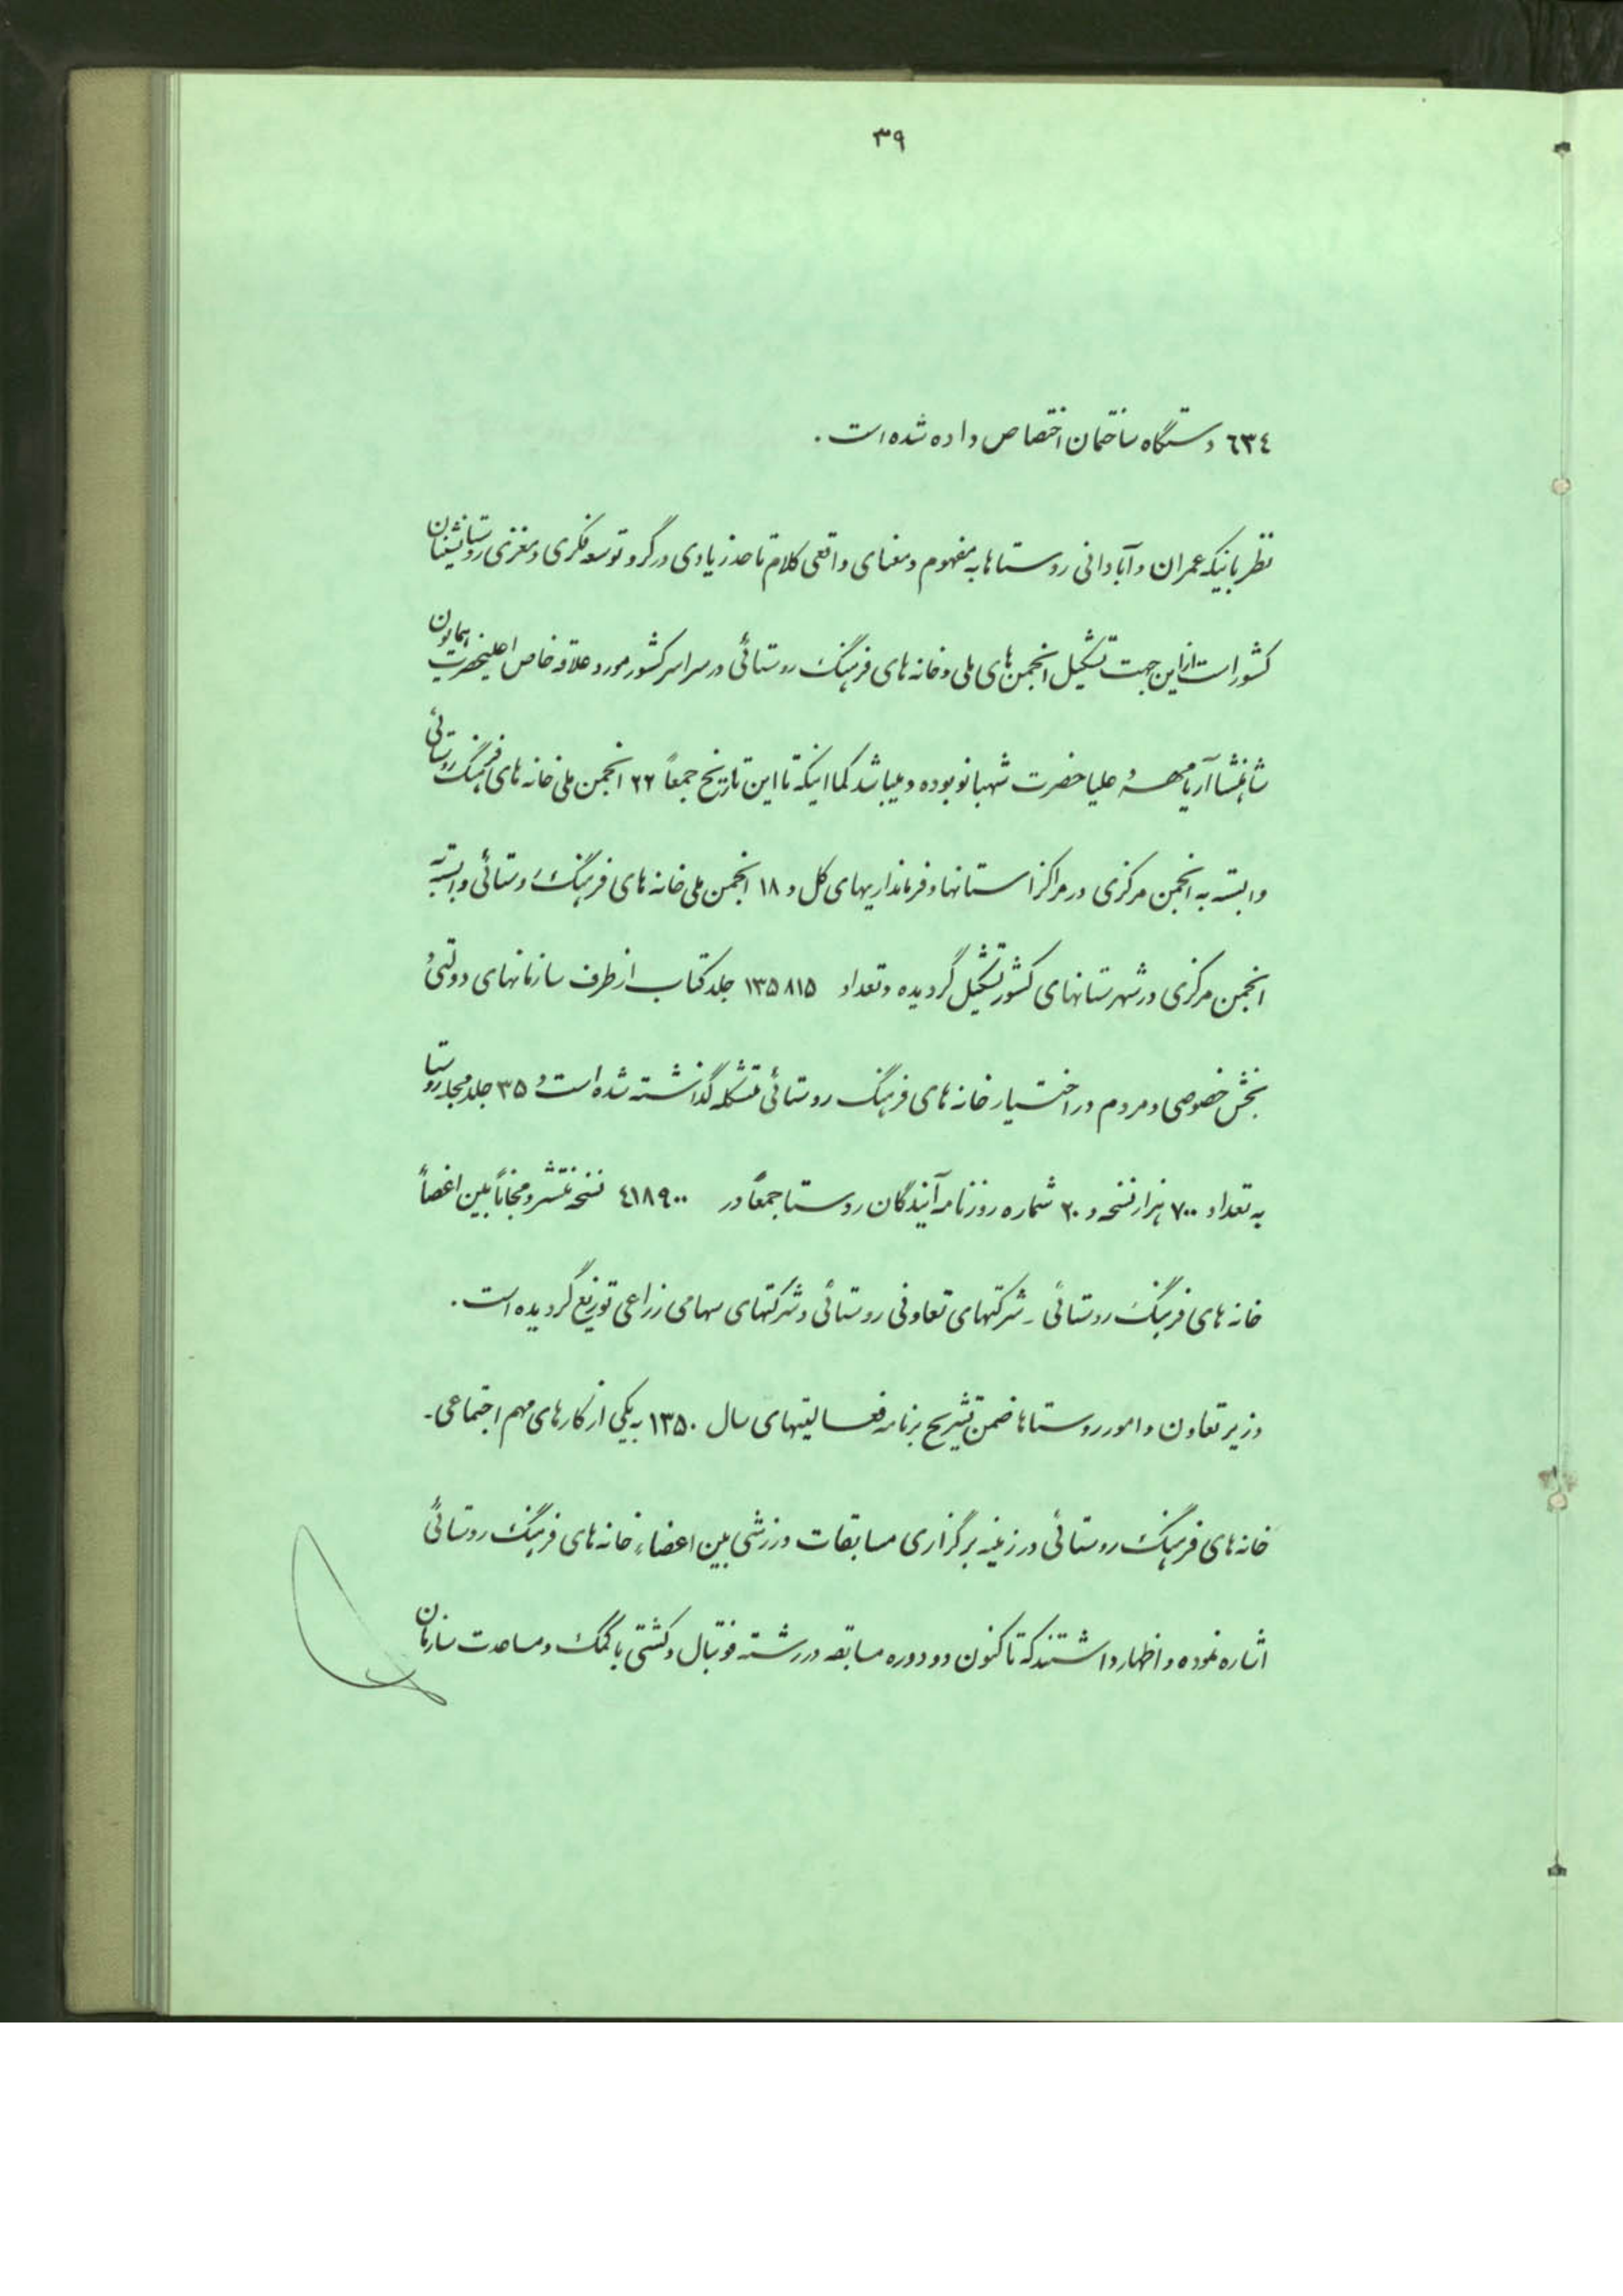 ۳۹
٦٣٤ دستگاه ساختمان اختصاص داده شده است.
نظر باینکه عمران و آبادانی روستاها به مفهوم و معنای واقعی کلام تا حد زیادی در گرو توسعه فکری و مغزی روستانشینان
کشور است از این جهت تشکیل انجمن‌های ملی و خانه‌های فرهنگ روستائی در سراسر کشور مورد علاقه خاص اعلیحضرت همایون
شاهنشاه آریامهر و علیاحضرت شهبانو بوده و میباشد کما اینکه تا این تاریخ جمعاً ۲۲ انجمن ملی خانه‌های فرهنگ روستائی
وابسته به انجمن مرکزی در مراکز استانها و فرمانداریهای کل و ۱۸ انجمن ملی خانه‌های فرهنگ روستائی وابسته به
انجمن مرکزی در شهرستانهای کشور تشکیل گردیده و تعداد ۱۳۵۸۱۵ جلد کتاب از طرف سازمانهای دولتی و
بخش خصوصی و مردم در اختیار خانه‌های فرهنگ روستائی متشکله گذاشته شده است و ۳۵ جلد مجله روستا
به تعداد ۷۰۰ هزار نسخه و ۲۰ شماره روزنامه آیندگان روستا جمعاً در ٤١٨٩٠٠ نسخه منتشر و مجاناً بین اعضاً
خانه‌های فرهنگ روستائی ـ شرکتهای تعاونی روستائی و شرکتهای سهامی زراعی توزیع گردیده است.
وزیر تعاون و امور روستاها ضمن تشریح برنامه فعالیتهای سال ۱۳۵۰ به یکی از کارهای مهم اجتماعی ـ
خانه‌های فرهنگ روستائی در زمینه برگزاری مسابقات ورزشی بین اعضاء خانه‌های فرهنگ روستائی
اشاره نموده و اظهار داشتند که تاکنون دو دوره مسابقه در رشته فوتبال و کشتی با کمک و مساعدت سازمان